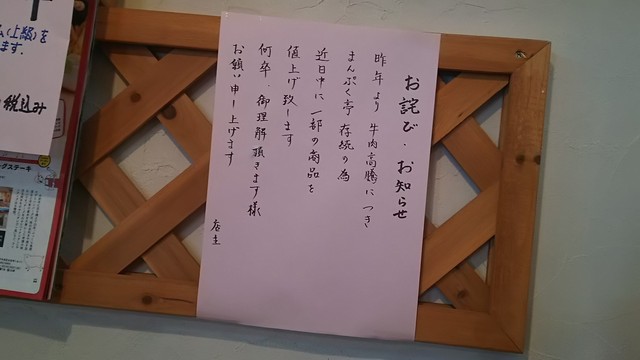 お詫び・お知らせ
昨年より 牛肉高騰につき
まんぷく亭 存続の為
近日中に 一部の商品を
値上げ致します
何卒、御理解頂きます様
お願い申し上げます
店主
(上級)を
ます.
税込み
グステーキ